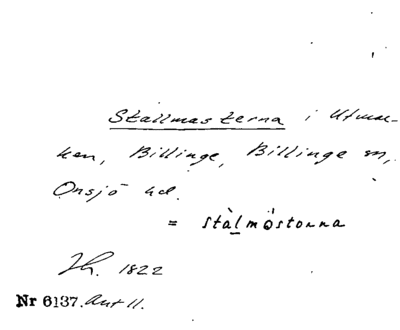 Stallmasterna i Utmar-
ken, Billinge, Billinge sn,
Onsjö hd.
= stàlmö̀storna
Jh. 1822
Nr 6137. Ant 11.